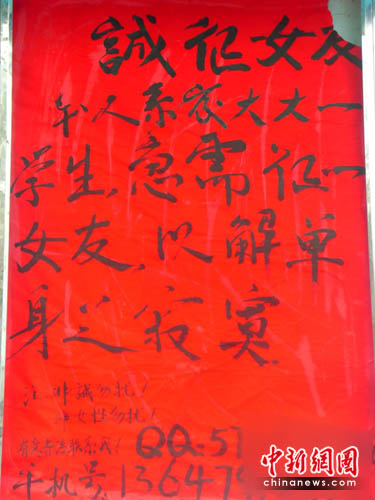 誠征女友
本人系茂大大一
学生,急需征一
女友,以解单
身之寂寞
注:非誠勿扰!
非女性勿扰!
有意者请联系我!
QQ:57
手机号 136479
中新網
chinanews.com